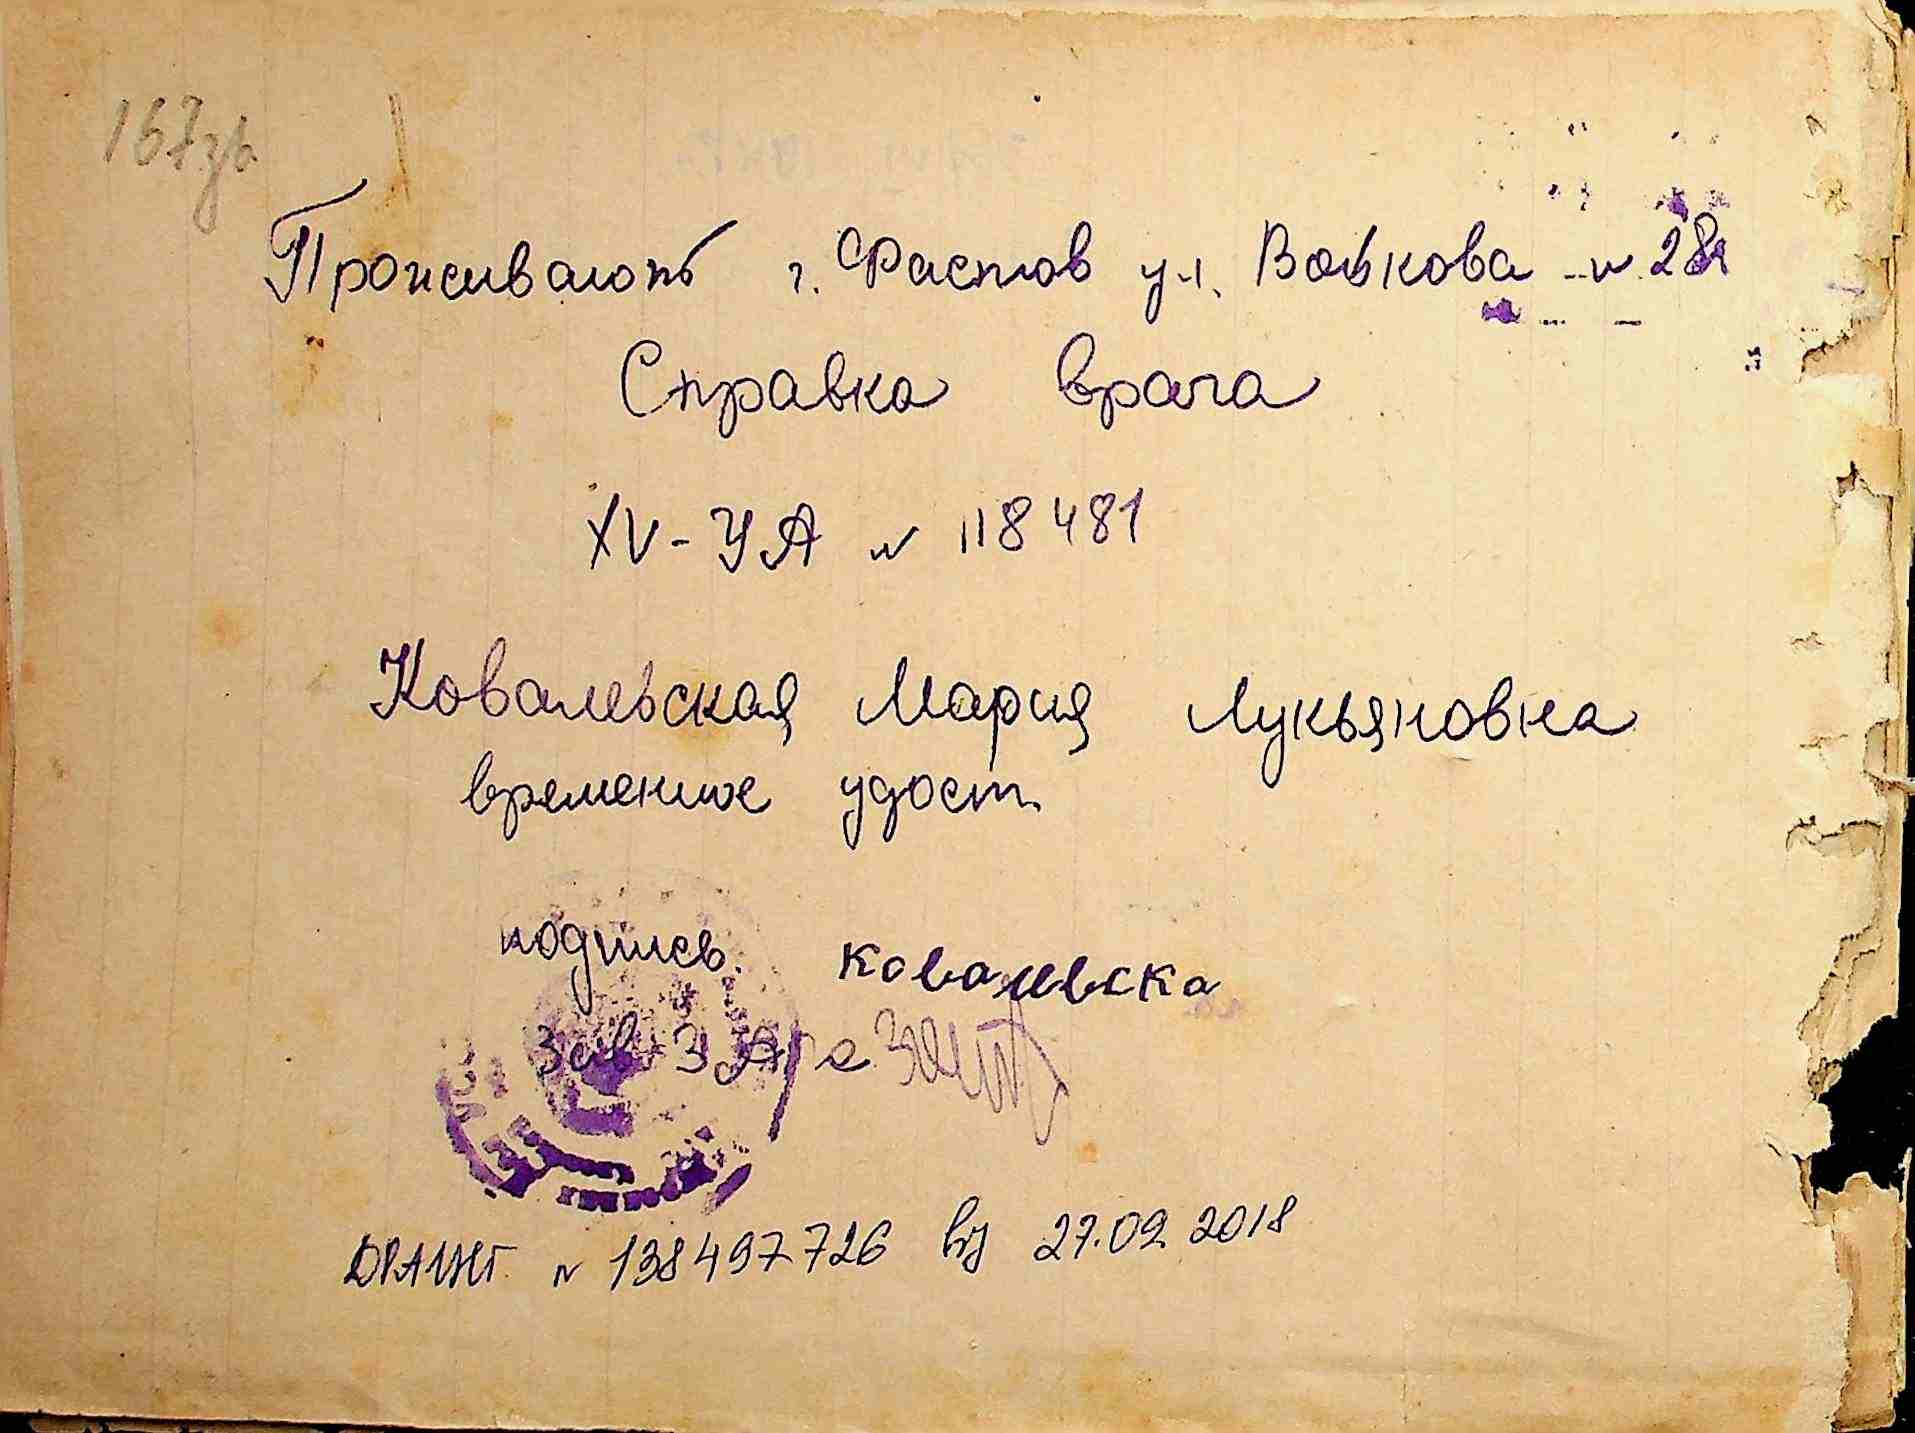 167зв.
Проживают г. Фастов ул. Войкова № 28а
Справка врача
XV-УА № 118481
Ковалевская Мария Лукьяновна
временное удост.
подпись. Ковалевска
Зав. ЗАГСа
ДРАЦСГ № 138497726 від 27.09.2018